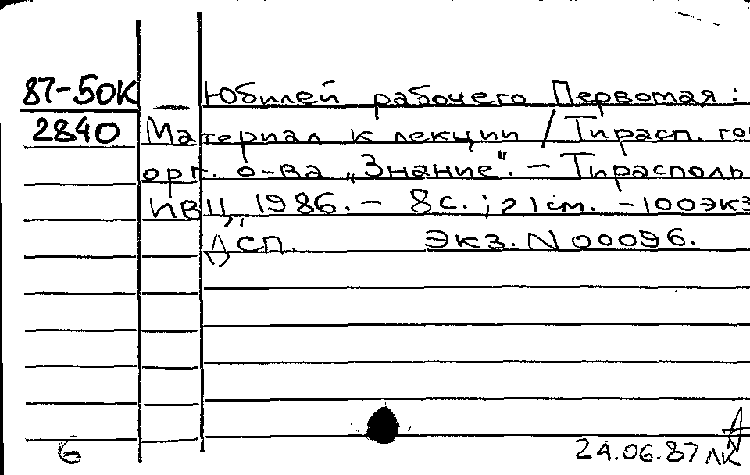 87-50К
2840
Юбилей рабочего Первомая :
Материал к лекции / Тирасп. гор
орг. о-ва „Знание". – Тирасполь
ИВЦ, 1986. – 8 с.; 21 см. – 100 экз
ДСП. Экз. N 00096.
6
24.06.87 ЛК